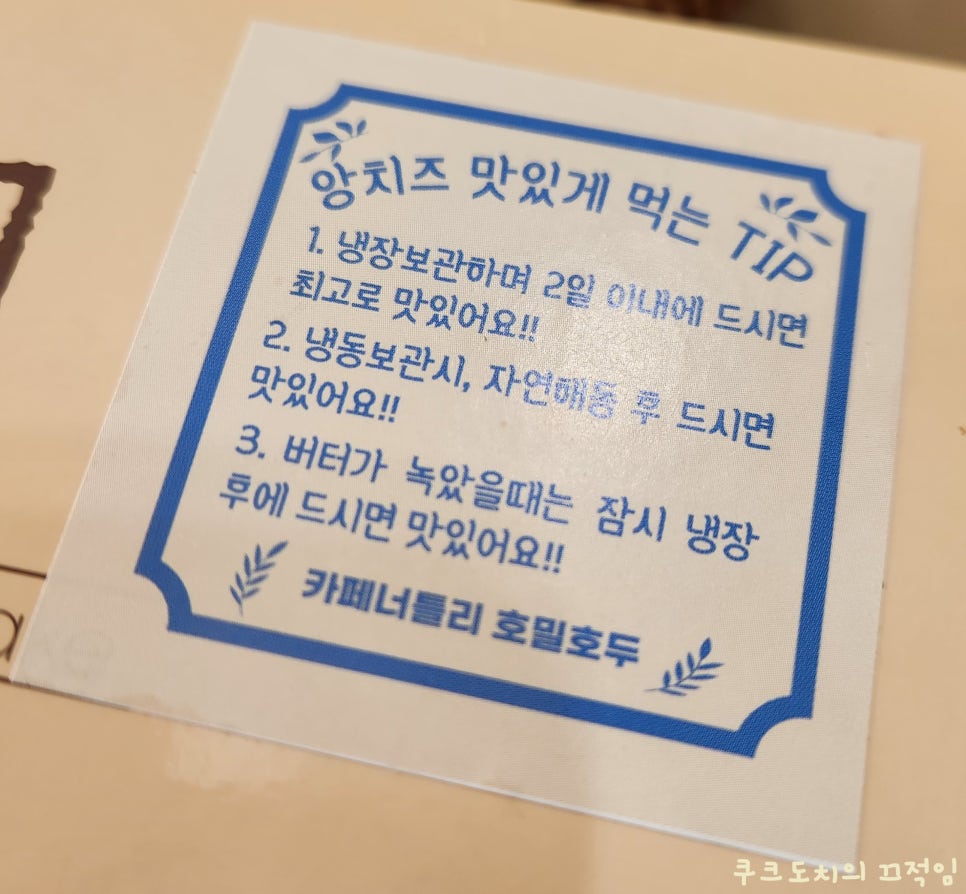 앙치즈 맛있게 먹는 TIP
1. 냉장보관하며 2일 이내에 드시면
최고로 맛있어요!!
2. 냉동보관시, 자연해동 후 드시면
맛있어요!!
3. 버터가 녹았을때는 잠시 냉장
후에 드시면 맛있어요!!
카페너틀리 호밀호두
쿠크도치의 끄적임